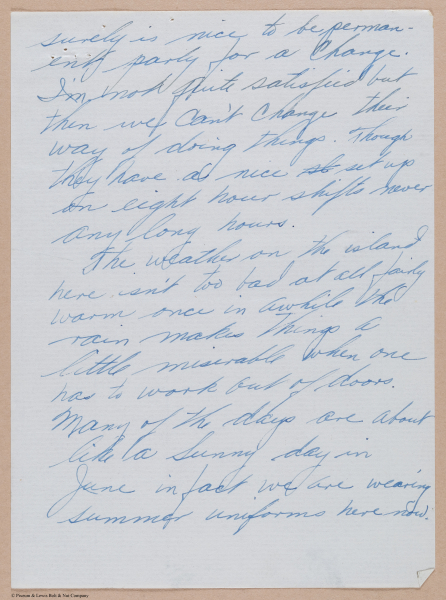 surely is nice to be perman-
ent party for a change.
I'm not quite satisfied but
then we can't change their
way of doing things. Though
they have a nice set up
on eight hour shifts never
any long hours.
The weather on the island
here isn't too bad at all fairly
warm once in awhile the
rain makes things a
little miserable when one
has to work out of doors.
Many of the days are about
like a sunny day in
June in fact we are wearing
summer uniforms here now.
© Preston & Lewis Bolt & Nut Company